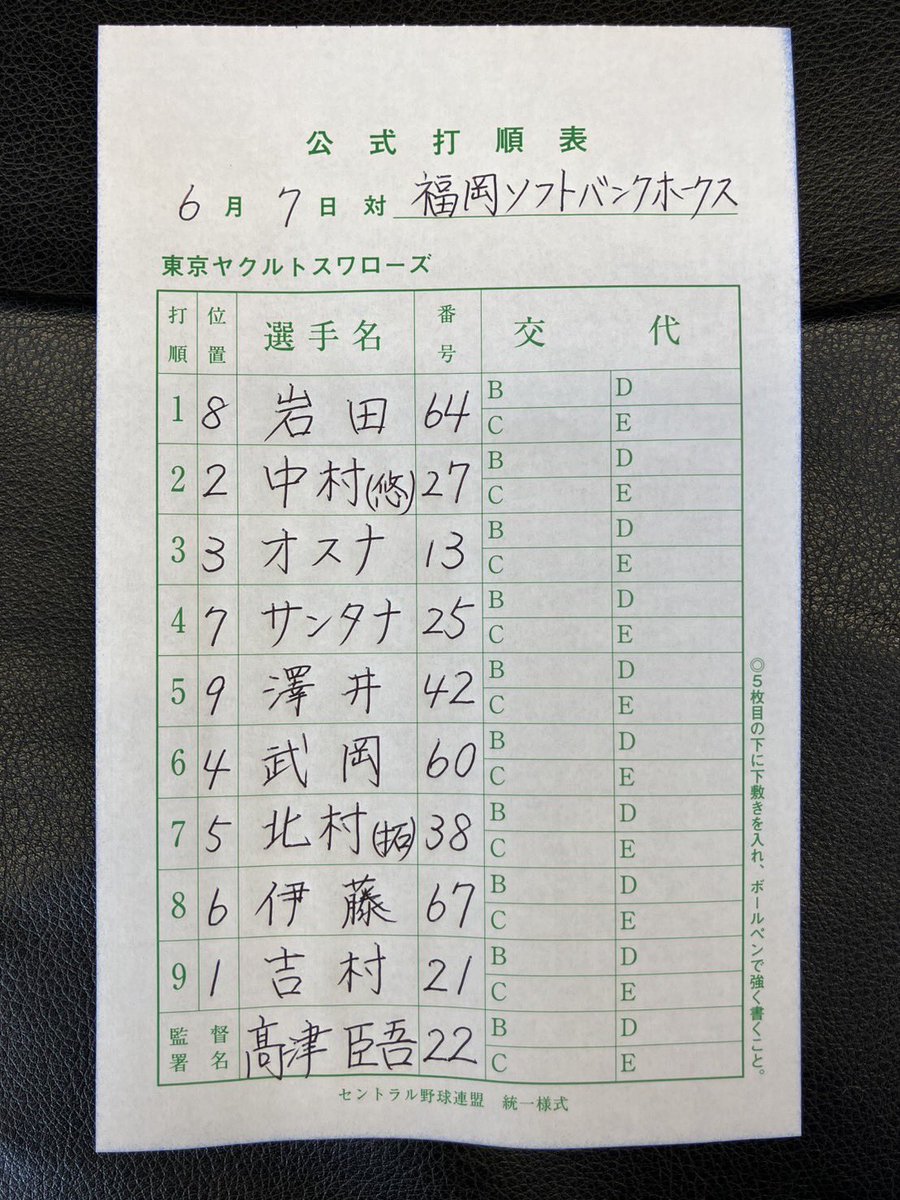 公式打順表
6月7日対 福岡ソフトバンクホークス
東京ヤクルトスワローズ
打順 位置 選手名 番号 交代
1 8 岩田 64 B D C E
2 2 中村(悠) 27 B D C E
3 3 オスナ 13 B D C E
4 7 サンタナ 25 B D C E
5 9 澤井 42 B D C E
6 4 武岡 60 B D C E
7 5 北村(拓) 38 B D C E
8 6 伊藤 67 B D C E
9 1 吉村 21 B D C E
監督署名 髙津臣吾 22 B D C E
セントラル野球連盟 統一様式
◎5枚目の下に下敷きを入れ、ボールペンで強く書くこと。